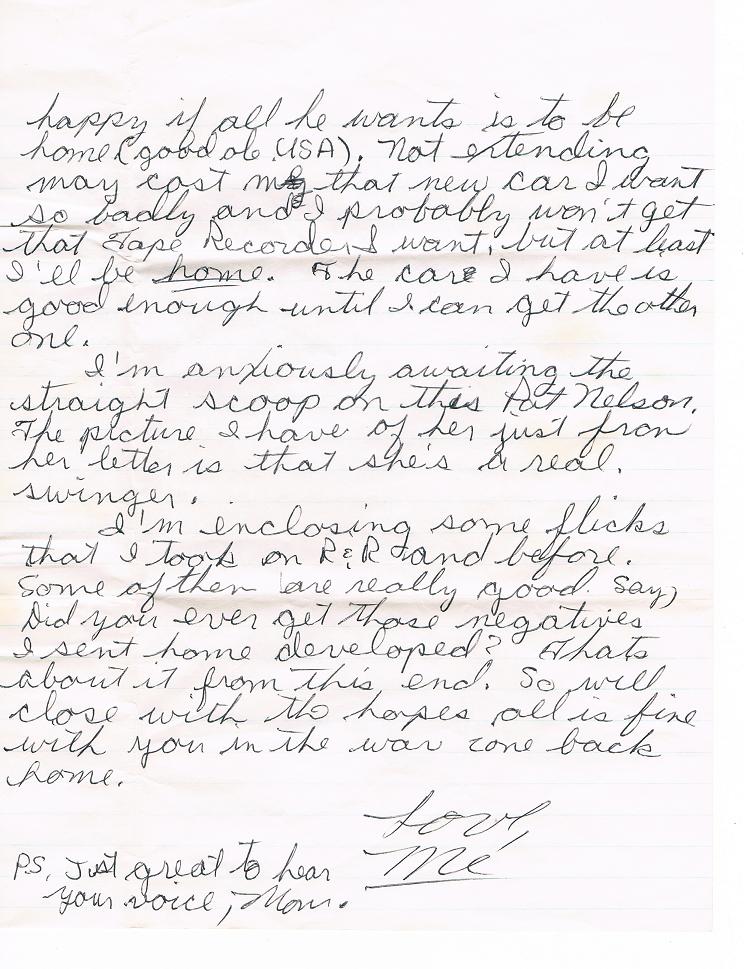 happy if all he wants is to be
home (good ole USA). Not extending
may cost me that new car I want
so badly and I probably won't get
that Tape Recorder I want, but at least
I'll be home. The car I have is
good enough until I can get the other
one.
I'm anxiously awaiting the
straight scoop on this Pat Nelson.
The picture I have of her just from
her letter is that she's a real
swinger.
I'm enclosing some flicks
that I took on R&R and before.
Some of them are really good. Say,
Did you ever get those negatives
I sent home developed? Thats
about it from this end. So will
close with the hopes all is fine
with you in the war zone back
home.
Love,
Me
P.S. Just great to hear
your voice, Mom.